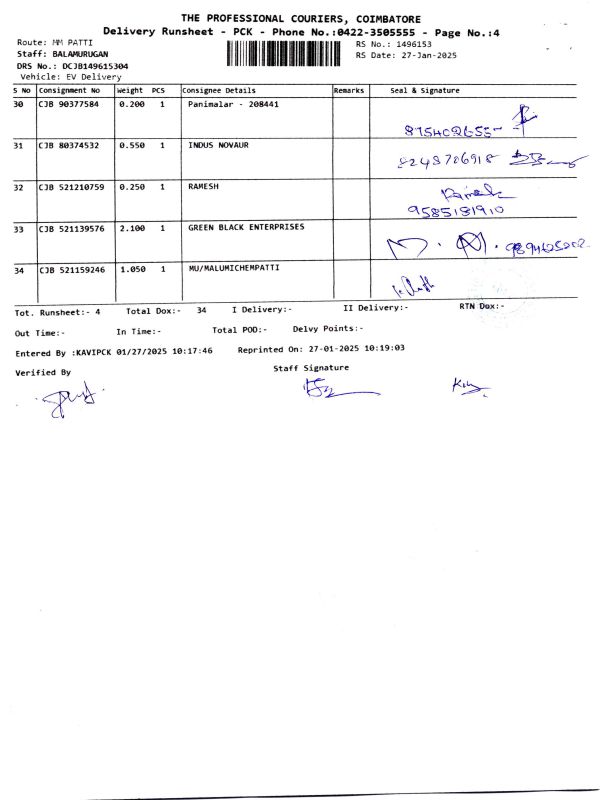 THE PROFESSIONAL COURIERS, COIMBATORE
Delivery Runsheet - PCK - Phone No.:0422-3505555 - Page No.:4
Route: MM PATTI
RS No.: 1496153
Staff: BALAMURUGAN
RS Date: 27-Jan-2025
DRS No.: DCJB149615304
Vehicle: EV Delivery
S No Consignment No Weight PCS Consignee Details Remarks Seal & Signature
30 CJB 90377584 0.200 1 Panimalar - 208441
31 CJB 80374532 0.550 1 INDUS NOVAUR
8248706918
32 CJB 521210759 0.250 1 RAMESH
Ramesh
9585181910
33 CJB 521139576 2.100 1 GREEN BLACK ENTERPRISES
34 CJB 521159246 1.050 1 MU/MALUMICHEMPATTI
Tot. Runsheet:- 4 Total Dox:- 34 I Delivery:- II Delivery:- RTN Dox:-
Out Time:- In Time:- Total POD:- Delvy Points:-
Entered By :KAVIPCK 01/27/2025 10:17:46 Reprinted On: 27-01-2025 10:19:03
Verified By Staff Signature